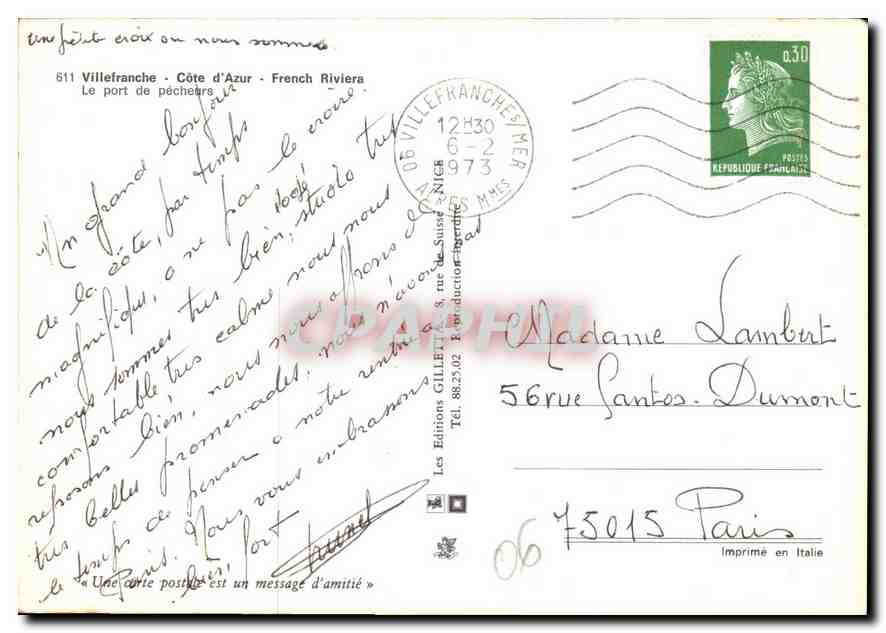 une petite croix ou nous sommes.
611 Villefranche - Côte d'Azur - French Riviera
Le port de pêcheurs
Un grand bonjour
de la côte, par temps
magnifique, a ne pas le croire.
nous sommes tres bien, logé studio tres
confortable tres calme nous nous
reposons bien, nous nous offrons de
tres belles promenades, nous n'avons pas
le temps de penser a notre rentrée a
Paris. Nous vous embrassons
bien fort
« Une carte postale est un message d'amitié »
Les Editions GILLETTA, 8, rue de Suisse NICE
Tél. 88.25.02 Reproduction interdite
06 VILLEFRANCHE S/MER
12H30
6-2
1973
ALPES MMES
0,30
POSTES
REPUBLIQUE FRANÇAISE
CPAPHIL
Madame Lambert
56 rue Santos-Dumont
75015 Paris
Imprimé en Italie
06